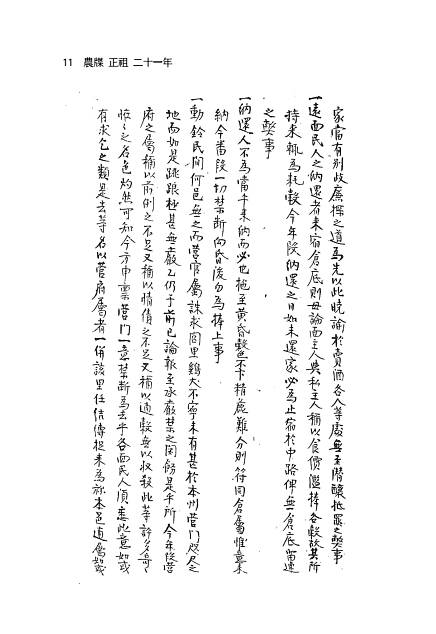 11 農牒 正祖 二十一年
家富有別故廉探之道爲先以此曉諭於賣酒各人等處無至潛釀抵罪之弊事
一遠面民人之納還者來宿倉底則毋論面主人與私主人稱以食價濫捧各穀故其所
持來輒爲耗縮今年段納還之日如未還家必爲止宿於中路俾無倉底留連
之弊事
一納還人不爲當午來納而必也拖至黃昏駁雜精麁難分則符同倉屬惟意來
納今番段一切禁斷向昏後勿爲捧上事
一動鈴民間何邑無之而營官屬誅求閭里鷄犬不寧未有甚於本州營門咫尺之
地而如是跳踉極甚無嚴乙仍于前已論報至承嚴禁之關飭是乎所今年段營
府之屬稱以前例之不足又稱以情債之不足又稱以適歉無以收殺此等許多
之名色灼然可知今方申稟營門一意禁斷爲去乎各面民人須悉此意如或
有求乞之類是去等名以營府屬者一倂該里任結縛捉來爲旀本邑道屬如或